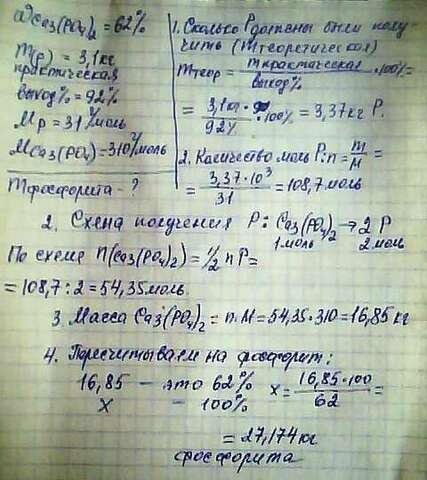 ω Ca3(PO4)2 = 62%
m(p) = 3,1 кг
практическая
выход% = 92%
Mp = 31 г/моль
MCa3(PO4) = 310 г/моль
mфосфорита - ?
1. Сколько P должны были полу-
чить (mтеоретическая)
mтеор = mпрактическая / выход% · 100% =
= 3,1 кг / 92% · 100% = 3,37 кг P.
2. Количество моль P: n = m/M =
= 3,37 · 10³ / 31 = 108,7 моль
2. Схема получения P: Ca3(PO4)2 → 2 P
1 моль 2 моль
По схеме n(Ca3(PO4)2) = 1/2 nP =
= 108,7 : 2 = 54,35 моль.
3. Масса Ca3(PO4)2 = n · M = 54,35 · 310 = 16,85 кг
4. Пересчитываем на фосфорит:
16,85 — это 62% x = 16,85 · 100 / 62 =
x — 100%
= 27,174 кг
фосфорита